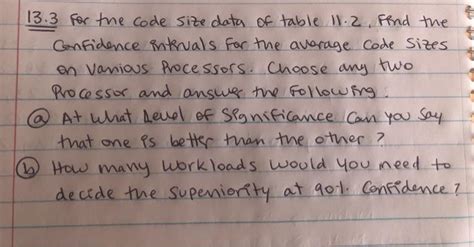 13.3 For the code size data of table 11.2, Find the
Confidence intervals for the average code sizes
on various processors. Choose any two
Processor and answer the following.
(a) At what Level of Significance can you say
that one is better than the other?
(b) How many workloads would you need to
decide the superiority at 90% confidence?